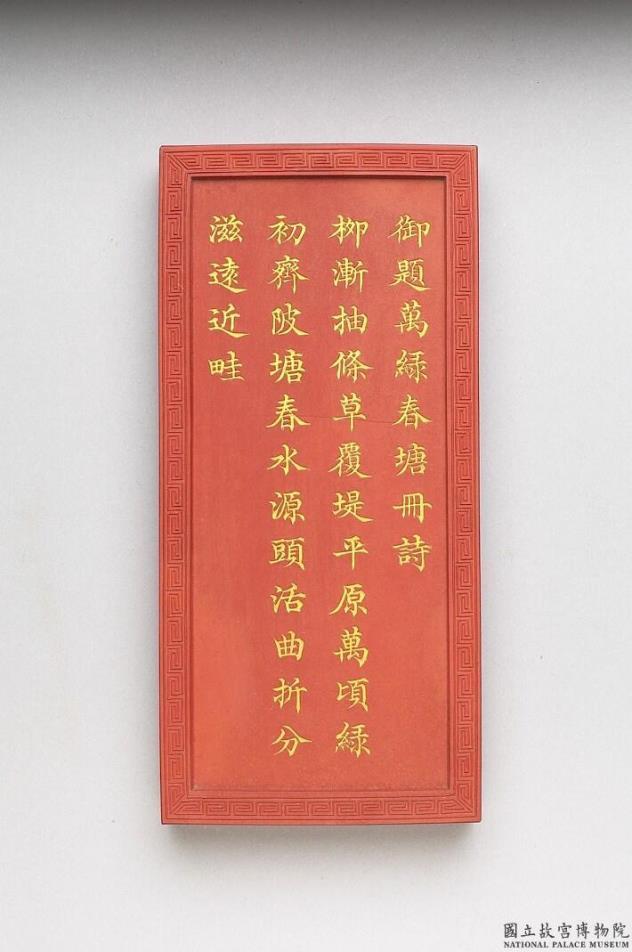 御題萬綠春塘冊詩
柳漸抽條草覆堤平原萬頃綠
初齊陂塘春水源頭活曲折分
滋遠近畦
國立故宮博物院
NATIONAL PALACE MUSEUM